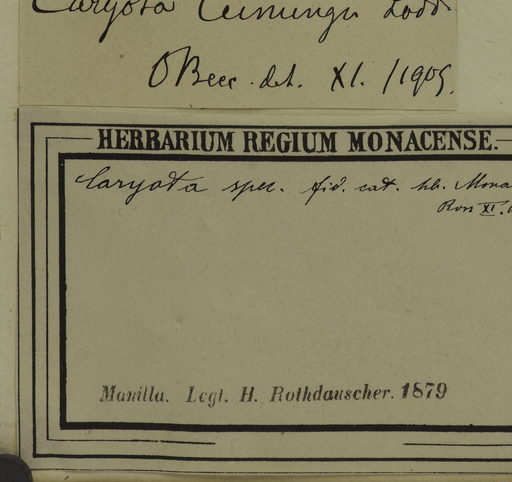 Caryota Cumingii Lodd
O Becc. det. XI. /1905.
HERBARIUM REGIUM MONACENSE.
Caryota spec. fid. cat. hb. Mona
Ross XI.
Manilla. Legt. H. Rothdauscher. 1879